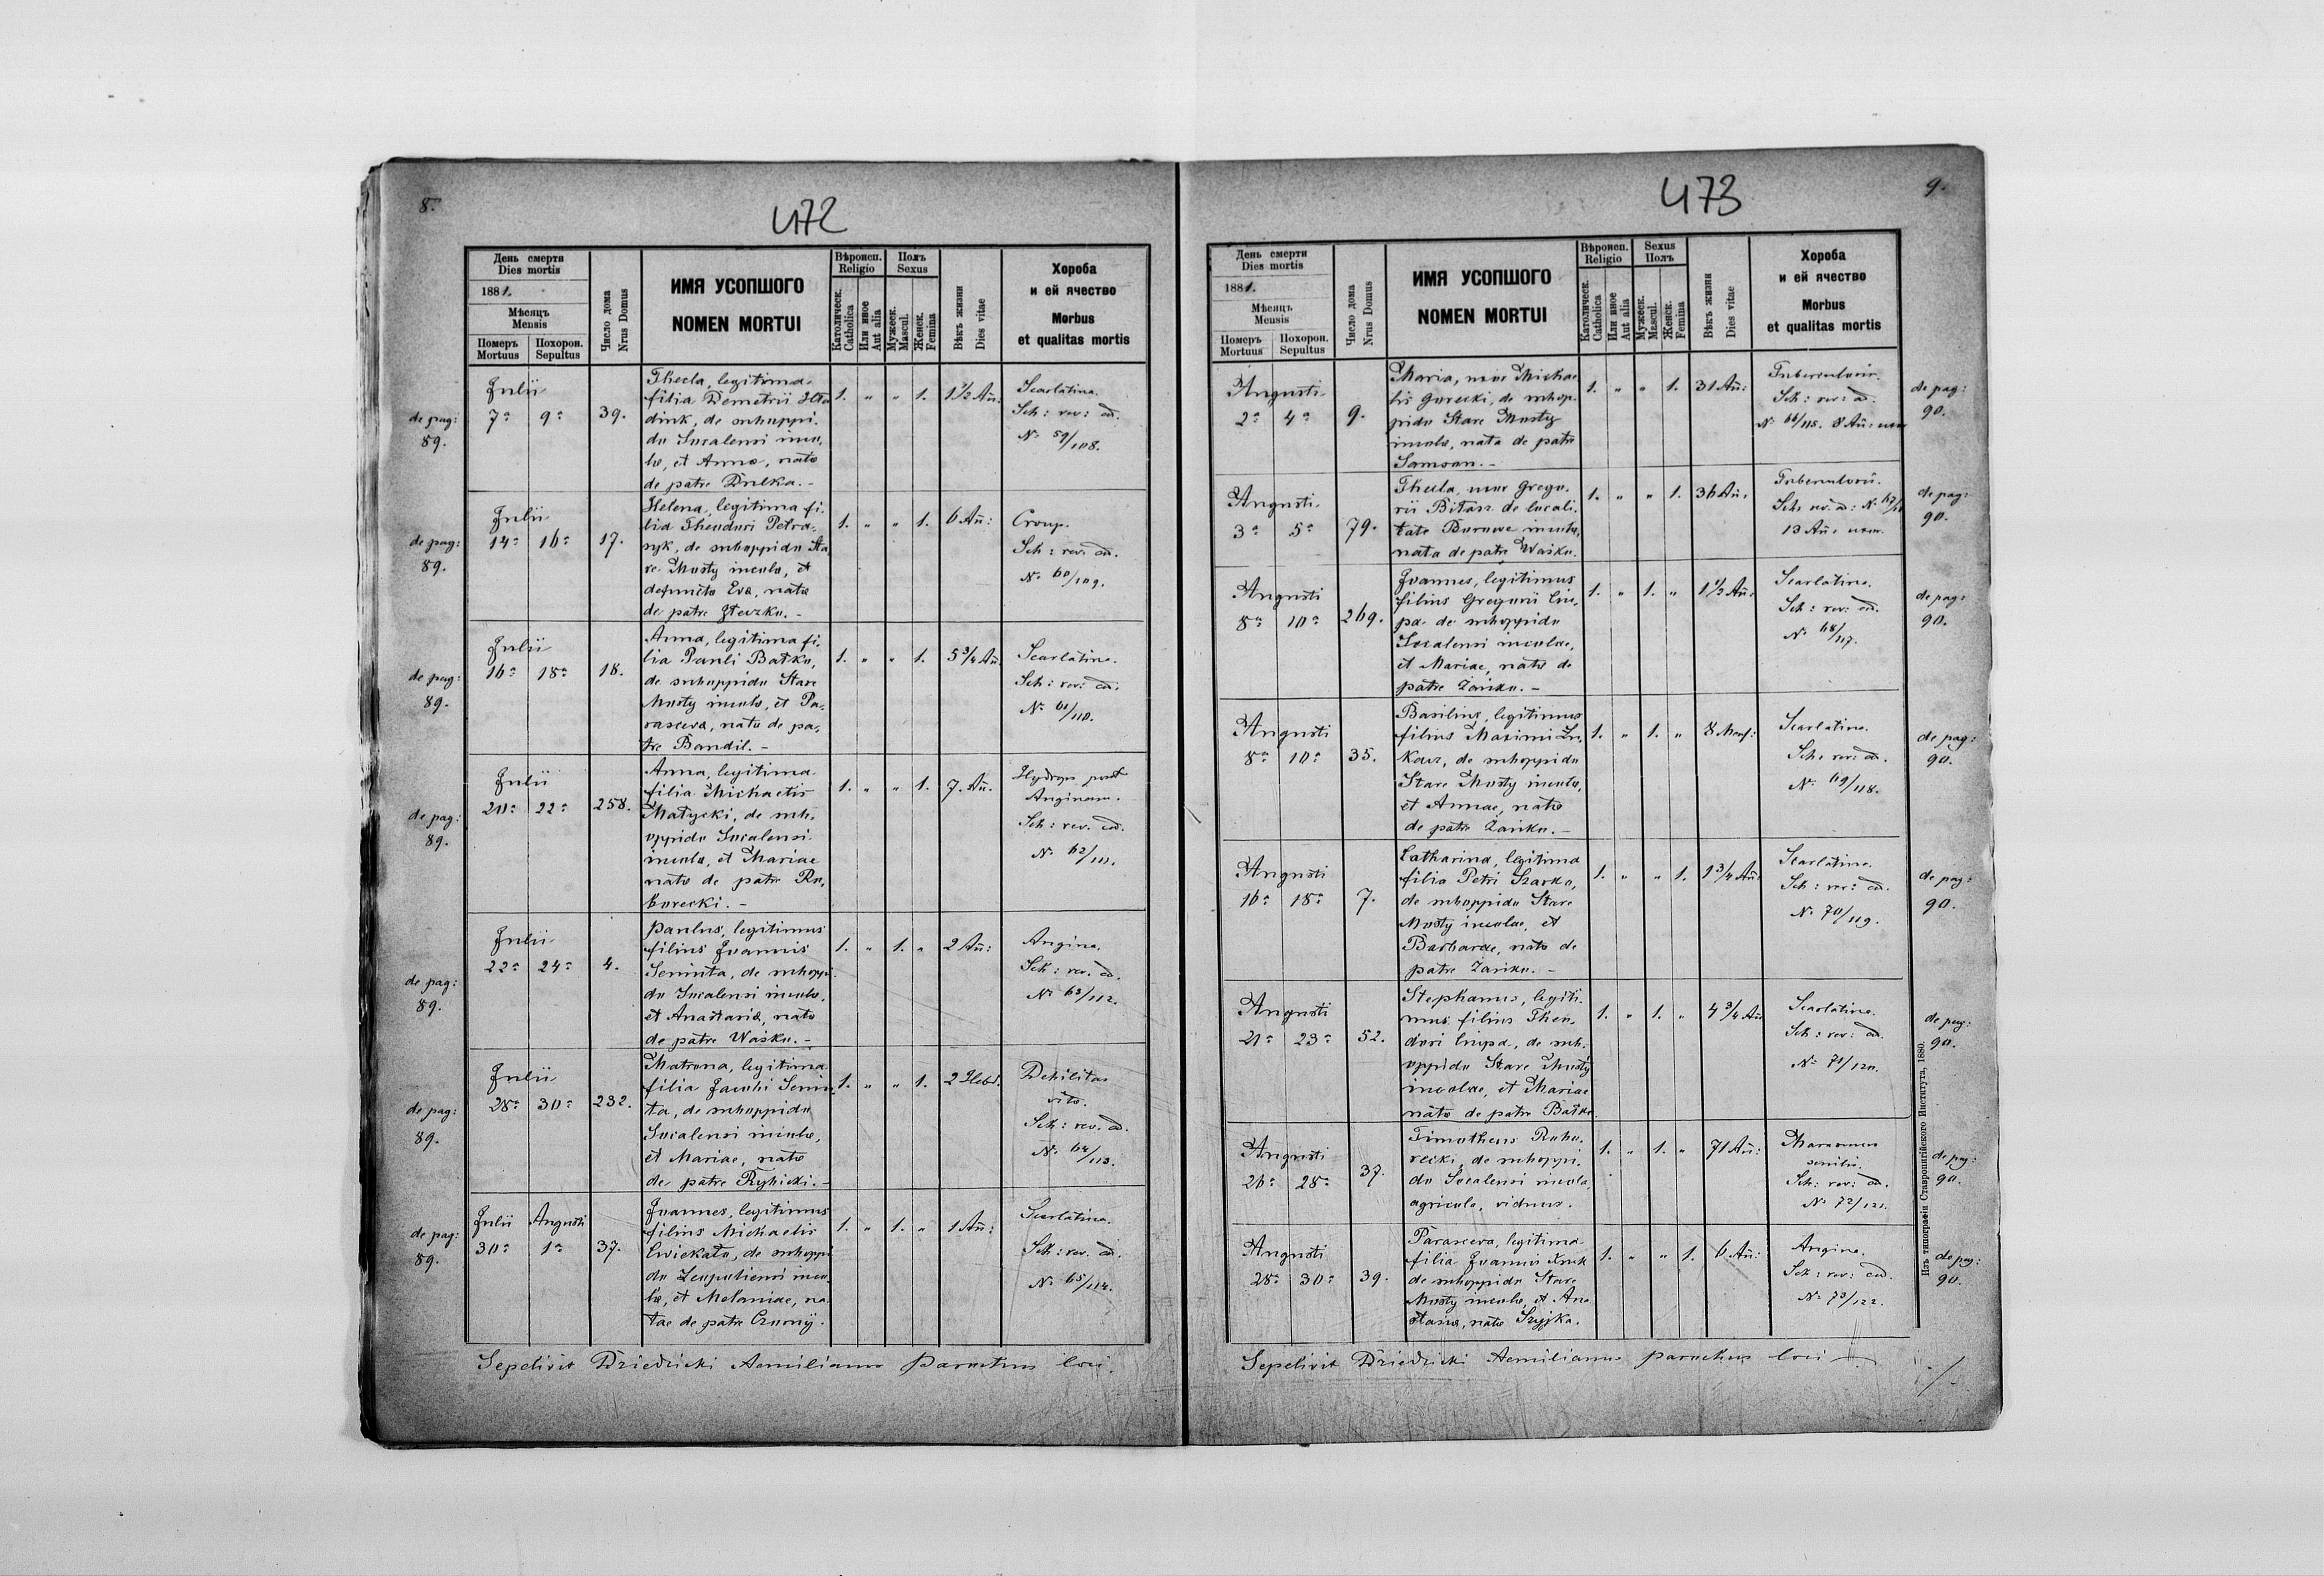 8.
472
День смерти
Dies mortis
1881.
Мѣсяцъ
Mensis
Померъ
Mortuus
Похорон.
Sepultus
Число дома
Nrus Domus
ИМЯ УСОПШОГО
NOMEN MORTUI
Вѣроисп.
Religio
Католическ.
Catholica
Или иное
Aut alia
Полъ
Sexus
Мужеск.
Mascul.
Женск.
Femina
Вѣкъ жизни
Dies vitae
Хороба
и ей ячество
Morbus
et qualitas mortis
de pag:
89.
Julii
7a 9a 39.
Thecla, legitima
filia Demetrii
de suboppi-
do Socalensi inco-
lae, et Annae, natae
de patre Dulka. -
1. " " 1. 1 1/2 Añ:
Scarlatina.
Sch: rev: ad.
No 59/108.
de pag:
89.
Julii
14a 16a 17.
Helena, legitima fi-
lia Theodori Petra-
de suboppido Sta-
re Mosty incolae, et
defunctae Eva, natae
de patre
1. " " 1. 6 Añ:
Croup.
Sch: rev. ad.
No 60/109.
de pag:
89.
Julii
16a 18a 18.
Anna, legitima fi-
lia Pauli Batko,
de suboppido Stare
Mosty incolae, et Pa-
rasceva, natae de pa-
tre Bandil. -
1. " " 1. 5 3/4 Añ.
Scarlatina.
Sch: rev: ad.
No 61/110.
de pag:
89.
Julii
20a 22a 258.
Anna, legitima
filia Michaelis
Matycki, de sub-
oppido Socalensi
incolae, et Mariae
natae de patre Ro-
borecki. -
1. " " 1. 7. Añ.
Hydrops post
Anginam.
Sch: rev. ad.
No 62/111.
de pag:
89.
Julii
22a 24a 4.
Paulus, legitimus
filius Joannis
Seniuta, de suboppi-
do Socalensi incolae,
et Anastasiae, natae
de patre Wasko. -
1. " 1. " 2 Añ:
Angina.
Sch: rev. ad.
No 63/112.
de pag:
89.
Julii
28a 30a 232.
Matrona, legitima
filia Jacobi Seniu-
ta, de suboppido
Socalensi incolae,
et Mariae, natae
de patre Rybicki. -
1. " " 1. 2 Hebd.
Debilitas
vitae.
Sch: rev. ad.
No 64/113.
de pag:
89.
Julii Augusti
30a 1a 37.
Joannes, legitimus
filius Michaelis
de suboppi-
do Leopoliensi inco-
lae, et Melaniae, na-
tae de patre Czornij.
1. " 1. " 1 Añ:
Scarlatina.
Sch: rev. ad.
No 65/114.
Sepelivit Dziedzicki Aemilianus Parochus loci.
9.
473
День смерти
Dies mortis
1881.
Мѣсяцъ
Mensis
Померъ
Mortuus
Похорон.
Sepultus
Число дома
Nrus Domus
ИМЯ УСОПШОГО
NOMEN MORTUI
Вѣроисп.
Religio
Католическ.
Catholica
Или иное
Aut alia
Sexus
Полъ
Мужеск.
Mascul.
Женск.
Femina
Вѣкъ жизни
Dies vitae
Хороба
и ей ячество
Morbus
et qualitas mortis
Augusti
2a 4a 9.
Maria, uxor Michae-
lis Gorecki, de subop-
pido Stare Mosty
incolae, nata de patre
Samson. -
1. " " 1. 31 Añ:
Tuberculosis.
Sch: rev: ad.
No 66/115. 8 Añ: uxor
de pag:
90.
Augusti
3a 5a 79.
Thecla, uxor Grego-
rii Bitass de locali-
tate Borowe incolae,
nata de patre Wasko.
1. " " 1. 36 Añ.
Tuberculosis.
13 Añ. uxor.
de pag:
90.
Augusti
8a 10a 269.
Joannes, legitimus
filius Gregorii Ciu-
pa de suboppido
Socalensi incolae,
et Mariae, natae de
patre Zanko. -
1. " 1. " 1 1/2 Añ:
Scarlatina.
Sch: rev: ad.
No 68/117.
de pag:
90.
Augusti
8a 10a 35.
Basilius, legitimus
filius Maximi Lu-
de suboppido
Stare Mosty incolae,
et Annae, natae
de patre Zanko. -
1. " 1. " 8 Mens:
Scarlatina.
Sch: rev: ad.
No 69/118.
de pag:
90.
Augusti
16a 18a 7.
Catharina, legitima
filia Petri Szarko,
de suboppido Stare
Mosty incolae, et
Barbarae, natae de
patre Zanko. -
1. " " 1. 1 3/4 Añ:
Scarlatina.
Sch: rev: ad.
No 70/119.
de pag:
90.
Augusti
21a 23a 52.
Stephanus, legiti-
mus filius Theo-
dori Ciupa, de sub-
oppido Stare Mosty
incolae, et Mariae
natae de patre Batko.
1. " 1. " 4 3/4 Añ
Scarlatina.
Sch: rev: ad.
No 71/120.
de pag:
90.
Augusti
26a 28a 37.
Timotheus Robo-
recki, de suboppi-
do Socalensi incola,
agricola, viduus.
1. " 1. " 71 Añ:
Marasmus
senilis.
Sch: rev: ad.
No 72/121.
de pag:
90.
Augusti
28a 30a 39.
Parasceva, legitima
filia Joannis
de suboppido Stare
Mosty incolae, et Ana-
stasiae, natae Szyjka.
1. " " 1. 6 Añ:
Angina.
Sch: rev: ad.
No 73/122.
de pag:
90.
Изъ типографіи Ставропигійского Института, 1880.
Sepelivit Dziedzicki Aemilianus parochus loci